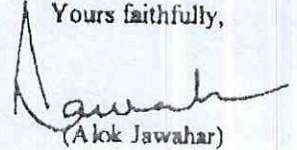 Yours faithfully,
(Alok Jawahar)